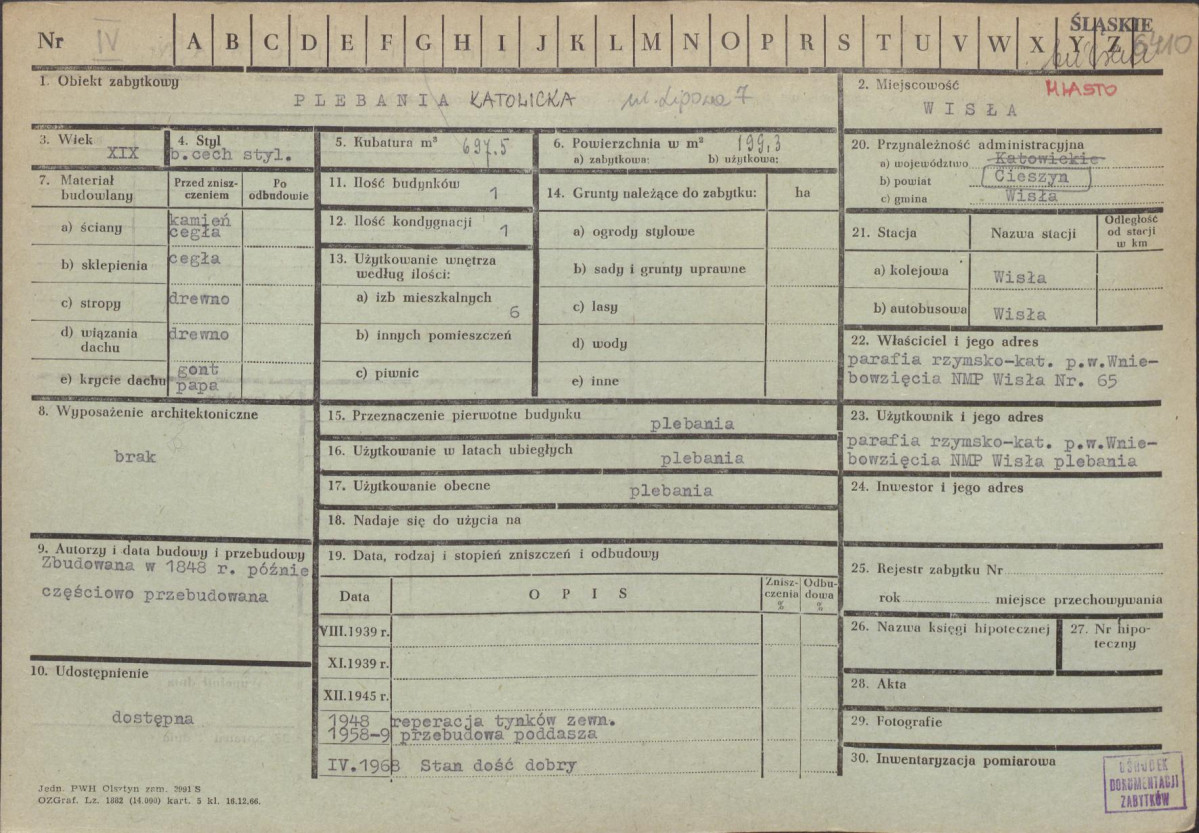 Nr IV A B C D E F G H I J K L M N O P R S T U V W X Y Z
ŚLĄSKIE
6410
1. Obiekt zabytkowy
PLEBANIA KATOLICKA ul. Lipowa 7
2. Miejscowość
MIASTO
WISŁA
3. Wiek
XIX
4. Styl
b.cech styl.
5. Kubatura m³ 697,5
6. Powierzchnia w m² 199,3
a) zabytkowa: b) użytkowa:
7. Materiał budowlany
Przed zniszczeniem
Po odbudowie
a) ściany
kamień
cegła
b) sklepienia cegła
c) stropy drewno
d) wiązania dachu drewno
e) krycie dachu
gont
papa
8. Wyposażenie architektoniczne
brak
9. Autorzy i data budowy i przebudowy
Zbudowana w 1848 r. późnie
częściowo przebudowana
10. Udostępnienie
dostępna
11. Ilość budynków 1
12. Ilość kondygnacji 1
13. Użytkowanie wnętrza
według ilości:
a) izb mieszkalnych 6
b) innych pomieszczeń
c) piwnic
14. Grunty należące do zabytku: ha
a) ogrody stylowe
b) sady i grunty uprawne
c) lasy
d) wody
e) inne
15. Przeznaczenie pierwotne budynku plebania
16. Użytkowanie w latach ubiegłych plebania
17. Użytkowanie obecne plebania
18. Nadaje się do użycia na
19. Data, rodzaj i stopień zniszczeń i odbudowy
Data OPIS Zniszczenia % Odbudowa %
VIII.1939 r.
XI.1939 r.
XII.1945 r.
1948 reperacja tynków zewn.
1958-9 przebudowa poddasza
IV.1968 Stan dość dobry
20. Przynależność administracyjna
a) województwo Katowickie
b) powiat Cieszyn
c) gmina Wisła
21. Stacja Nazwa stacji Odległość od stacji w km
a) kolejowa Wisła
b) autobusowa Wisła
22. Właściciel i jego adres
parafia rzymsko-kat. p.w.Wnie-
bowzięcia NMP Wisła Nr. 65
23. Użytkownik i jego adres
parafia rzymsko-kat. p.w.Wnie-
bowzięcia NMP Wisła plebania
24. Inwestor i jego adres
25. Rejestr zabytku Nr
rok miejsce przechowywania
26. Nazwa księgi hipotecznej
27. Nr hipo-
teczny
28. Akta
29. Fotografie
30. Inwentaryzacja pomiarowa
OŚRODEK
DOKUMENTACJI
ZABYTKÓW
Jedn. PWH Olsztyn zam. 2991 S
OZGraf. Lz. 1882 (14.000) kart. 5 kl. 16.12.66.